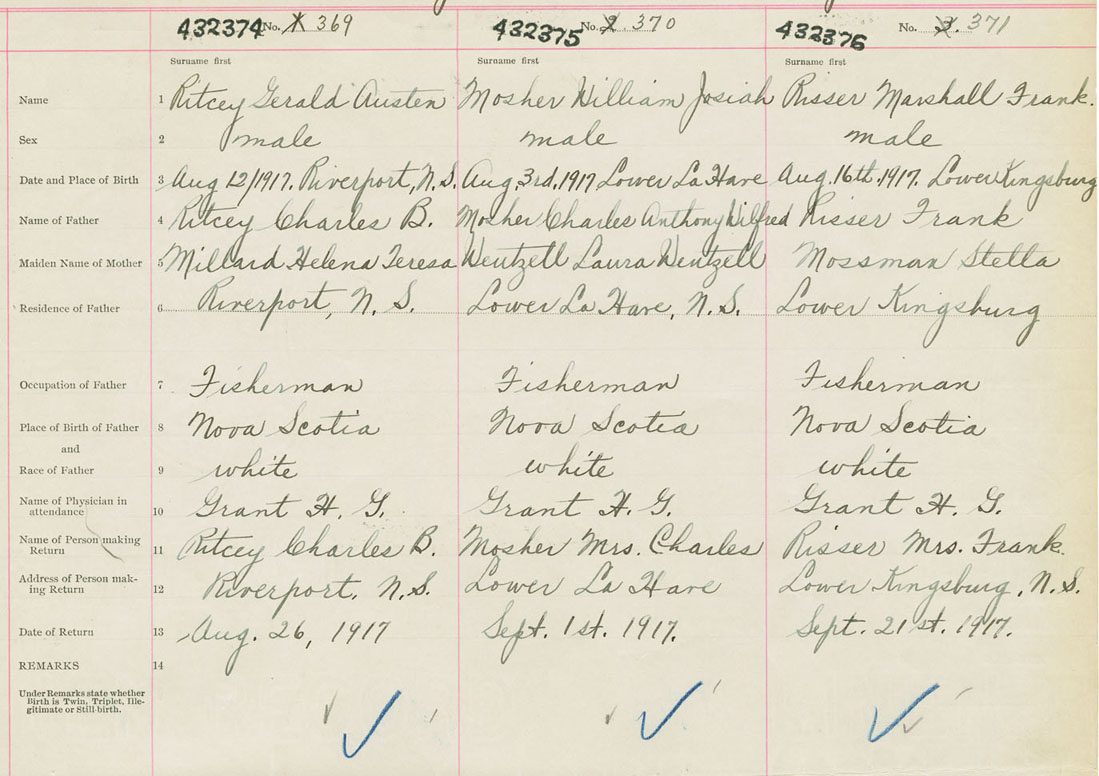 432374 No. 1 369 432375 No. 2. 370 432376 No. 3. 371
Surname first Surname first Surname first
Name 1 Ritcey Gerald Austen Mosher William Josiah Risser Marshall Frank.
Sex 2 male male male
Date and Place of Birth 3 Aug 12/1917. Riverport, N.S. Aug. 3rd, 1917 Lower La Have Aug. 16th, 1917. Lower Kingsburg
Name of Father 4 Ritcey Charles B. Mosher Charles Anthony Wilfred Risser Frank
Maiden Name of Mother 5 Millard Helena Teresa Wentzell Laura Wentzell Mossman Stella
Residence of Father 6 Riverport, N. S. Lower La Have, N. S. Lower Kingsburg
Occupation of Father 7 Fisherman Fisherman Fisherman
Place of Birth of Father 8 Nova Scotia Nova Scotia Nova Scotia
and
Race of Father 9 white white white
Name of Physician in
attendance 10 Grant H. G. Grant H. G. Grant H. G.
Name of Person making
Return 11 Ritcey Charles B. Mosher Mrs. Charles Risser Mrs. Frank.
Address of Person mak-
ing Return 12 Riverport, N.S. Lower La Have Lower Kingsburg, N.S.
Date of Return 13 Aug. 26, 1917 Sept. 1st. 1917. Sept. 21st. 1917.
REMARKS 14
Under Remarks state whether
Birth is Twin, Triplet, Ille-
gitimate or Still-birth.